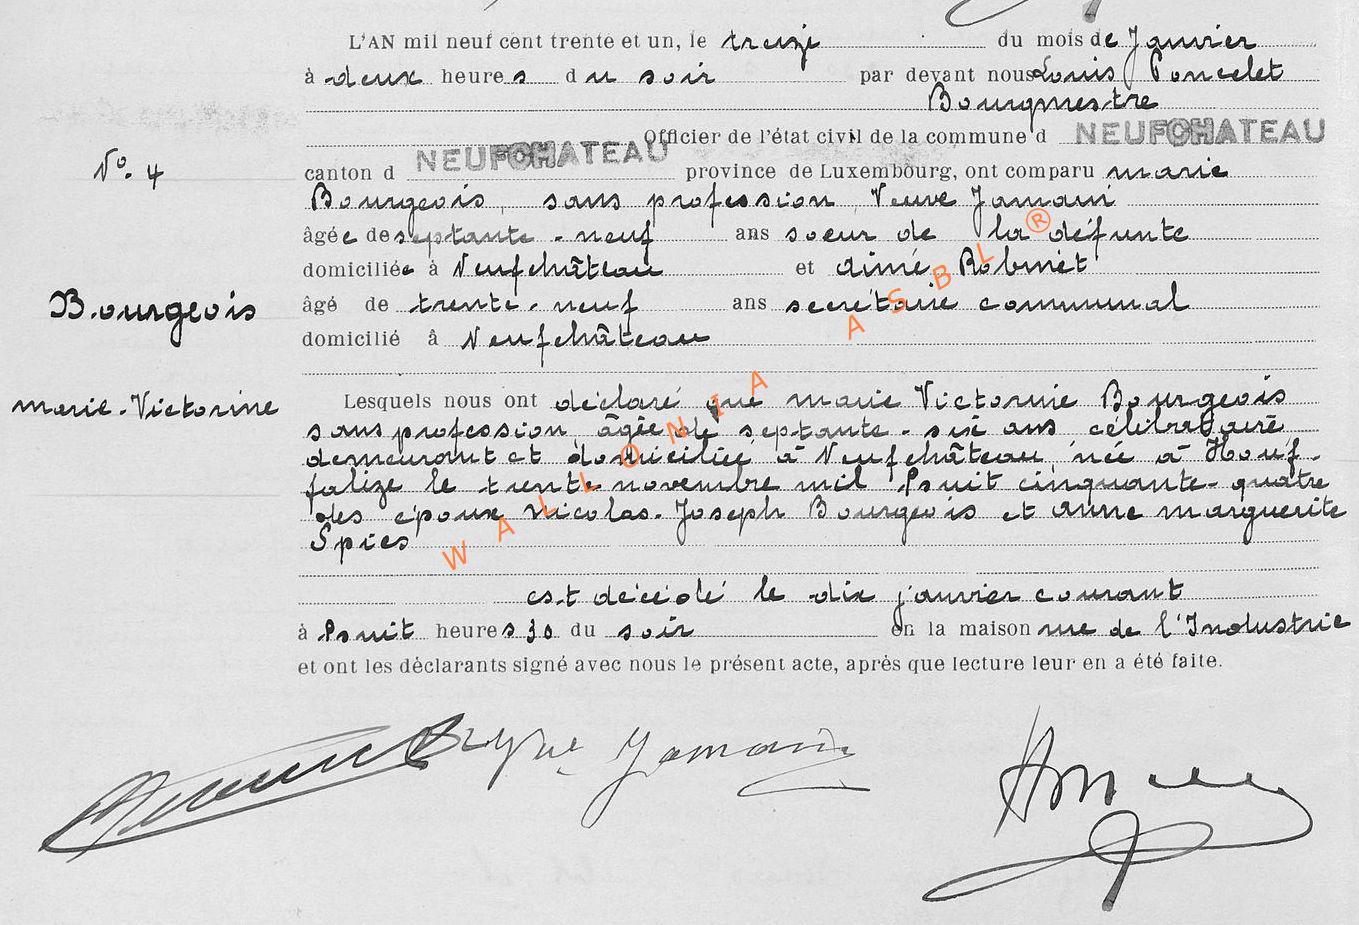 L'AN mil neuf cent trente et un, le treize du mois de Janvier
à deux heures du soir par devant nous Louis Poncelet
Bourgmestre
Officier de l'état civil de la commune d NEUFCHATEAU
N° 4
canton d NEUFCHATEAU province de Luxembourg, ont comparu marie
Bourgeois, sans profession, Veuve Jamain
âgée de septante-neuf ans soeur de la défunte
domiciliée à Neufchâteau et Aimé Robinet
Bourgeois
âgé de trente-neuf ans secrétaire communal
domicilié à Neufchâteau
marie-Victorine
Lesquels nous ont déclaré que marie Victorine Bourgeois
sans profession, âgée de septante-six ans célibataire
demeurant et domiciliée à Neufchâteau, née à Houf-
falize le trente novembre mil huit cinquante-quatre
des époux Nicolas-Joseph Bourgeois et Anne marguerite
Spies
est décédé le dix janvier courant
à huit heures 30 du soir en la maison rue de l'Industrie
et ont les déclarants signé avec nous le présent acte, après que lecture leur en a été faite.
Jamain
WALLONIA ASBL ®